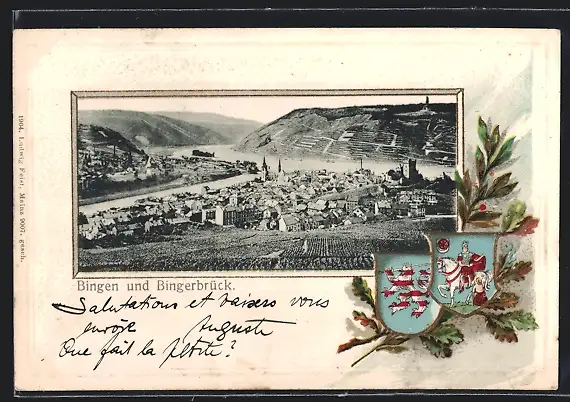 1904. Ludwig Feist, Mainz 9007. gesch.
Bingen und Bingerbrück.
Salutations et baisers vous
envoie Auguste
Que fait la petite?